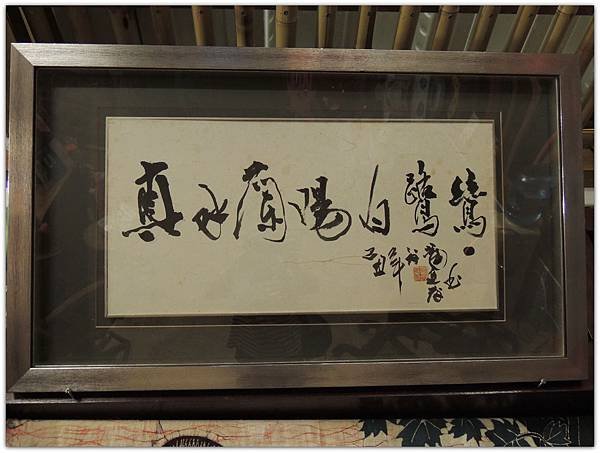 真水蘭陽白鷺鷥
己丑年